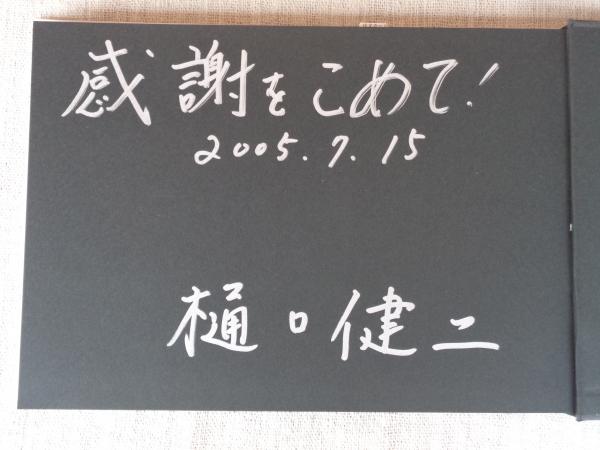 感謝をこめて!
2005.7.15
樋口健二